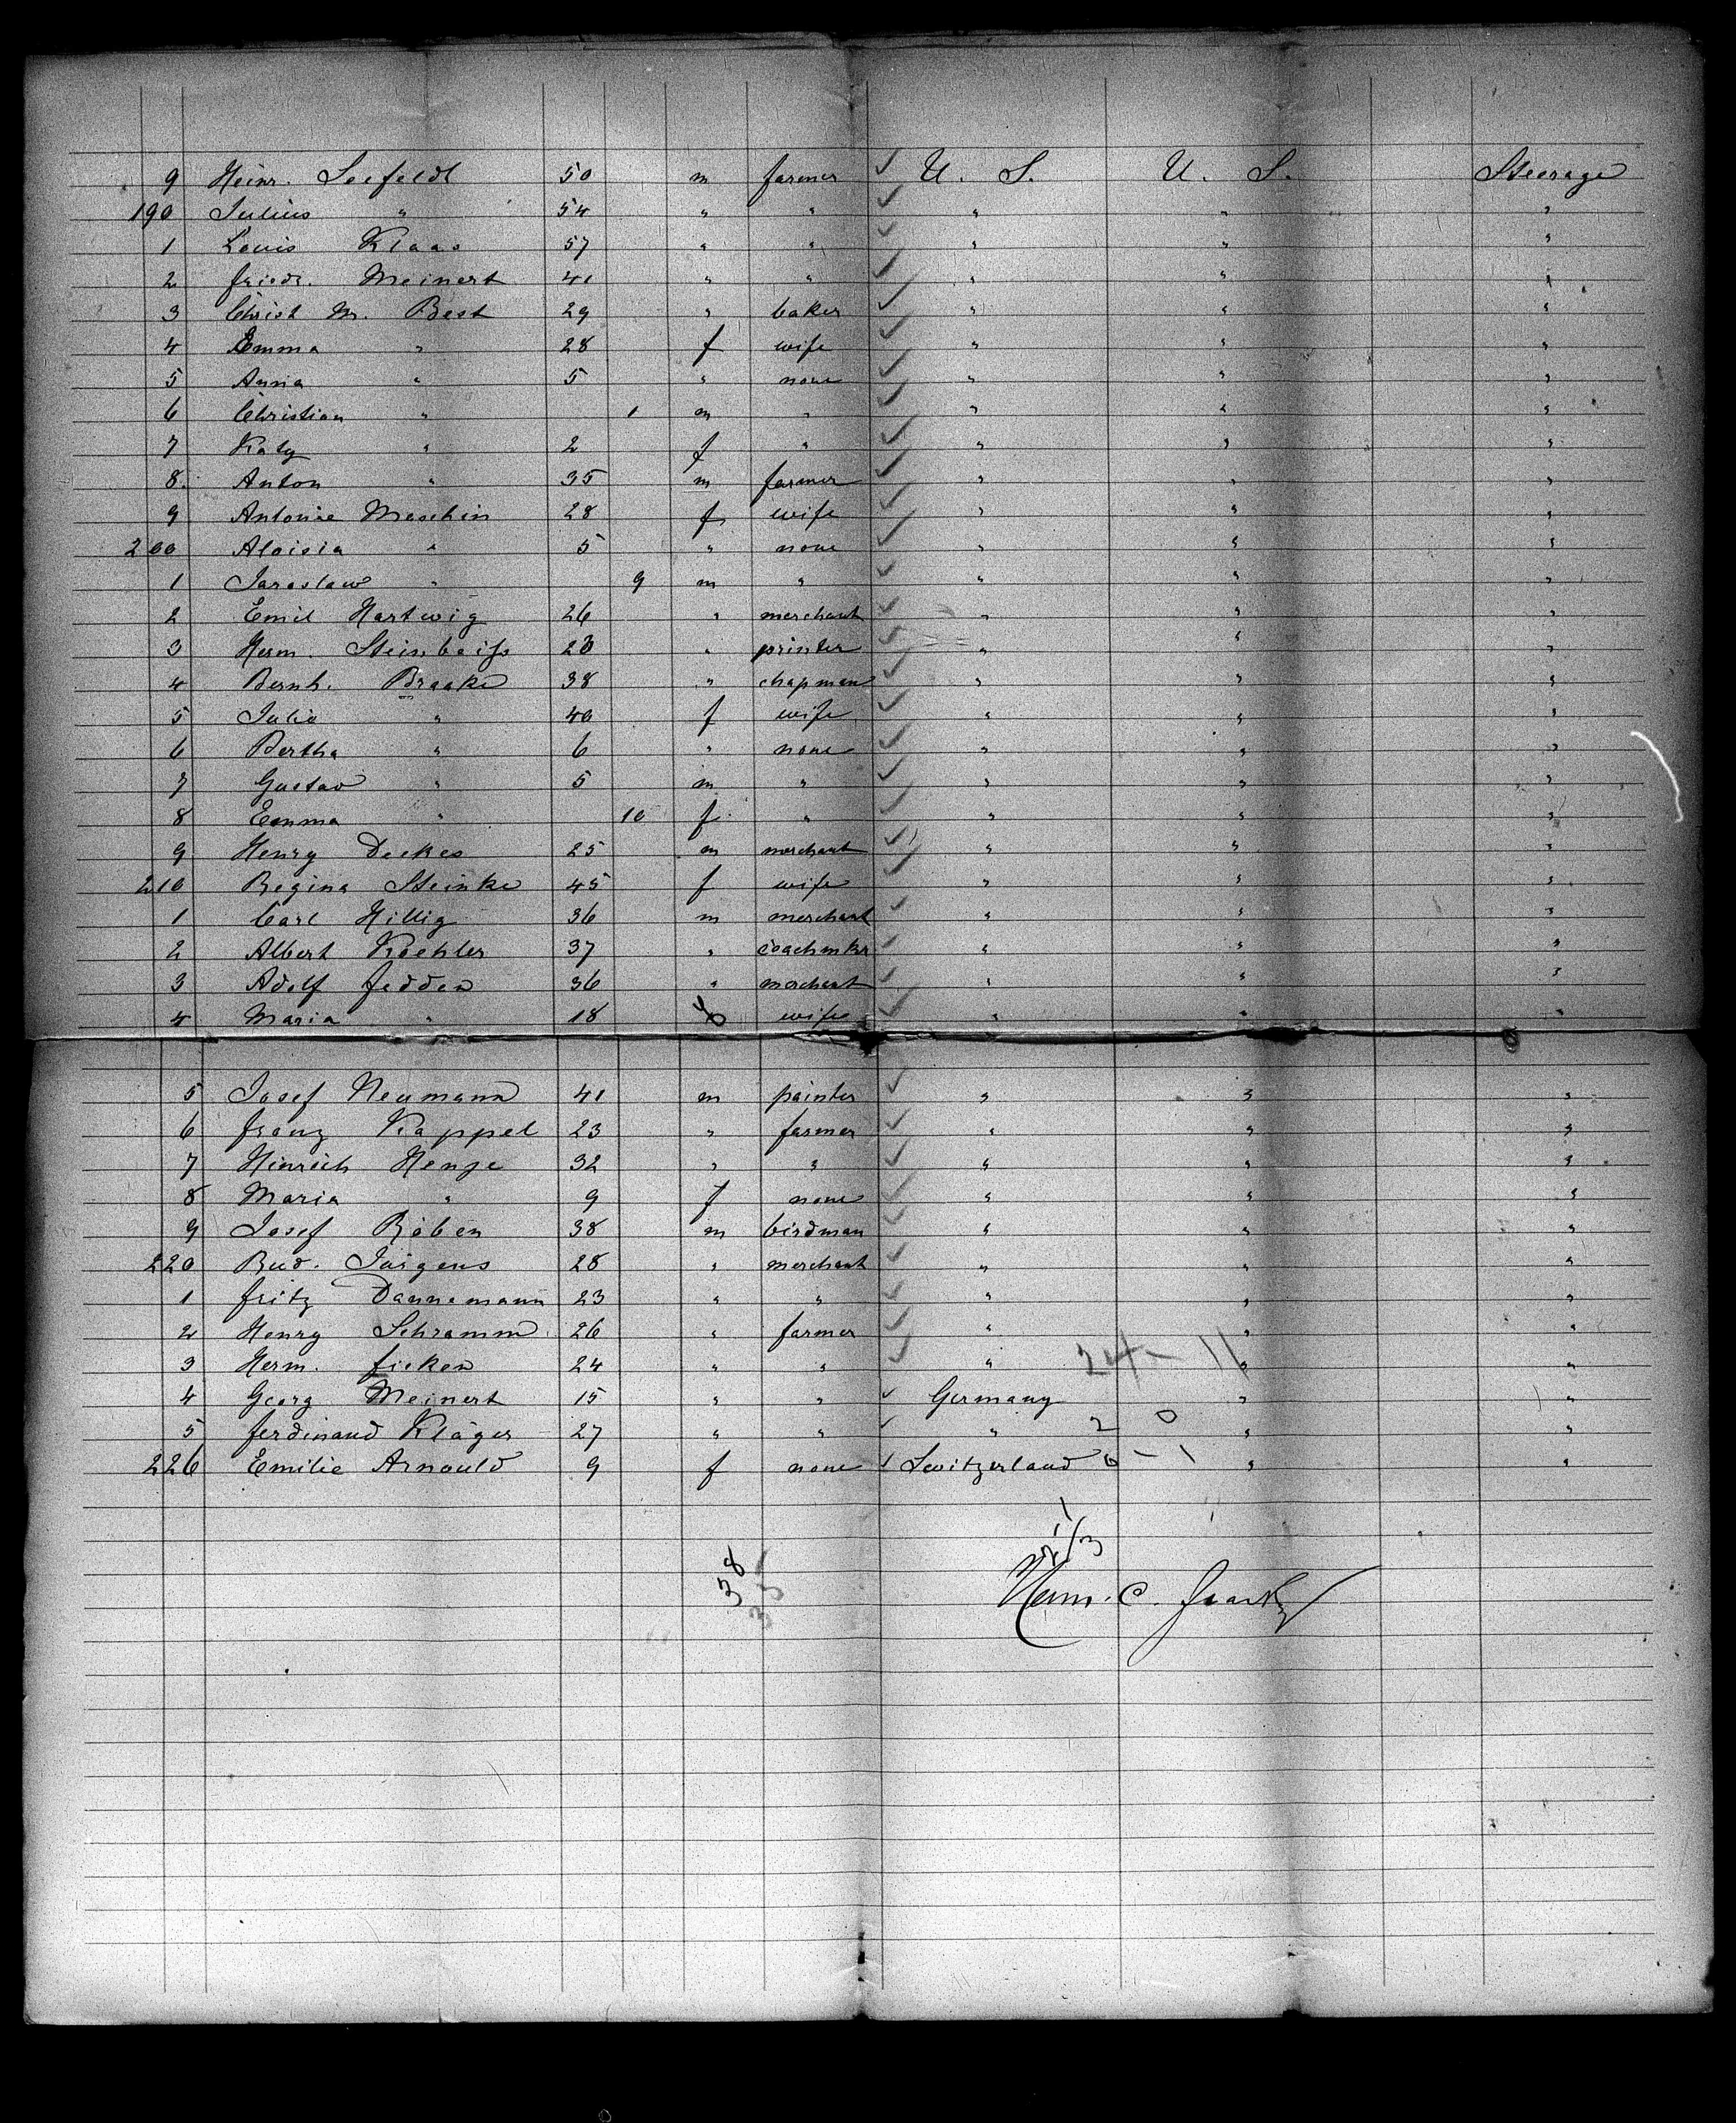 9 Heinr. Seefeldt 50 m farmer ✓ U. S. U. S. Steerage
190 Julius " 54 " " ✓ " " "
1 Louis Klaas 57 " " ✓ " " "
2 Friedr. Meinert 41 " " ✓ " " "
3 Christ M. Best 29 " baker ✓ " " "
4 Emma " 28 f wife ✓ " " "
5 Anna " 5 " none ✓ " " "
6 Christian " 1 m " ✓ " " "
7 Katy " 2 f " ✓ " " "
8 Anton " 35 m farmer ✓ " " "
9 Antonie Maschin 28 f wife ✓ " " "
200 Aloisia " 5 " none ✓ " " "
1 Jaroslaw " 9 m " ✓ " " "
2 Emil Hartwig 26 " merchant ✓ " " "
3 Herm. Steinbeiss 23 " printer ✓ " " "
4 Bernh. Braake 38 " chapman ✓ " " "
5 Julia " 40 f wife ✓ " " "
6 Bertha " 6 " none ✓ " " "
7 Gustav " 5 m " ✓ " " "
8 Emma " 10 f " ✓ " " "
9 Henry Deekes 25 m merchant ✓ " " "
210 Regina Steinke 45 f wife ✓ " " "
1 Carl Hillig 36 m merchant ✓ " " "
2 Albert Koehler 37 " coachmkr ✓ " " "
3 Adolf Fedden 36 " merchant ✓ " " "
4 Maria " 18 f wife ✓ " " "
5 Josef Neumann 41 m painter ✓ " " "
6 Franz Kappel 23 " farmer ✓ " " "
7 Hinrich Henje 32 " " ✓ " " "
8 Maria " 9 f none ✓ " " "
9 Josef Röben 38 m birdman ✓ " " "
220 Rud. Jürgens 28 " merchant ✓ " " "
1 Fritz Dannemann 23 " " ✓ " " "
2 Henry Schramm 26 " farmer ✓ " " "
3 Herm. Ficken 24 " " ✓ " 24 - 11 " "
4 Georg Meinert 15 " " ✓ Germany " "
5 Ferdinand Kläger 27 " " ✓ " 2 0 " "
226 Emilie Arnould 9 f none ✓ Switzerland 0 - 1 " "
38
35
Herm. C.